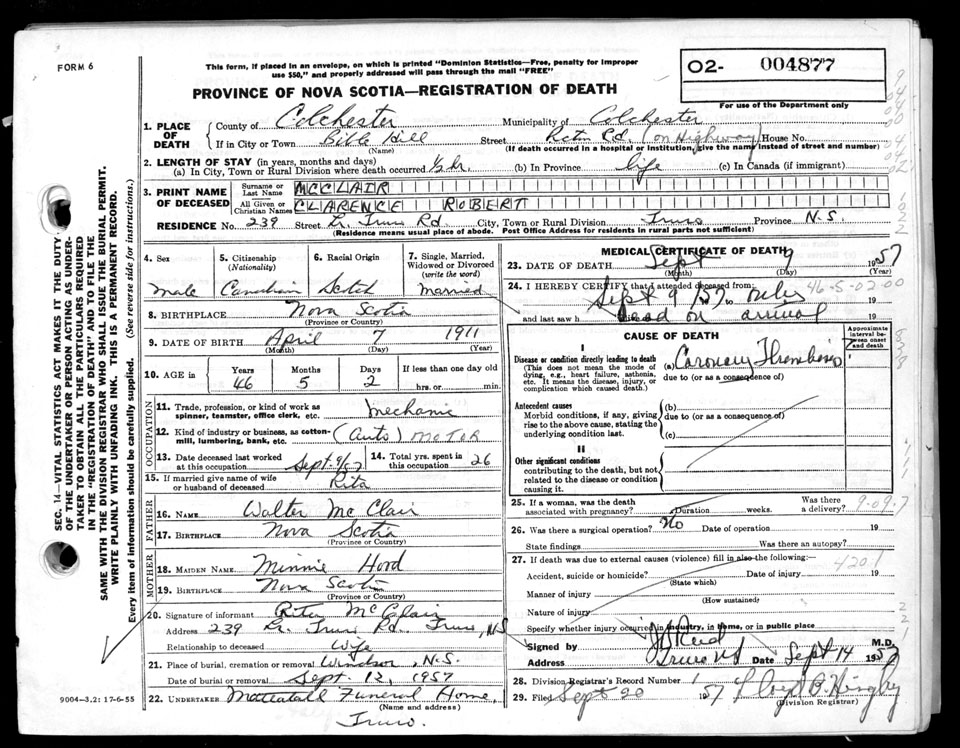 FORM 6
This form, if placed in an envelope, on which is printed "Dominion Statistics—Free, penalty for improper
use $50," and properly addressed will pass through the mail "FREE"
O2- 004877
For use of the Department only
PROVINCE OF NOVA SCOTIA—REGISTRATION OF DEATH
1. PLACE OF DEATH
County of Colchester Municipality of Colchester
If in City or Town Bible Hill Street Rd (on Highway) House No.
(Name) (If death occurred in a hospital or institution, give the name instead of street and number)
2. LENGTH OF STAY (in years, months and days)
(a) In City, Town or Rural Division where death occurred ½ hr. (b) In Province life (c) In Canada (if immigrant)
3. PRINT NAME OF DECEASED
Surname or Last Name MCCLAIR
All Given or Christian Names CLARENCE ROBERT
RESIDENCE No. 239 Street Lr. Truro Rd. City, Town or Rural Division Truro Province N.S.
(Residence means usual place of abode. Post Office Address for residents in rural parts not sufficient)
4. Sex
male
5. Citizenship
(Nationality)
Canadian
6. Racial Origin
7. Single, Married,
Widowed or Divorced
(write the word)
married
8. BIRTHPLACE Nova Scotia
(Province or Country)
9. DATE OF BIRTH April 7 1911
(Month) (Day) (Year)
10. AGE in Years Months Days If less than one day old
46 5 2 hrs. or min.
OCCUPATION
11. Trade, profession, or kind of work as
spinner, teamster, office clerk. etc. mechanic
12. Kind of industry or business, as cotton-
mill, lumbering, bank, etc. (Auto) MOTOR
13. Date deceased last worked
at this occupation Sept. 9/57
14. Total yrs. spent in
this occupation 26
15. If married give name of wife
or husband of deceased Rita
FATHER
16. NAME Walter McClair
17. BIRTHPLACE Nova Scotia
(Province or Country)
MOTHER
18. MAIDEN NAME Minnie Hord
19. BIRTHPLACE Nova Scotia
(Province or Country)
20. Signature of informant Rita McClair
Address 239 Lr. Truro Rd. Truro, NS
Relationship to deceased Wife
21. Place of burial, cremation or removal Windsor, N.S.
Date of burial or removal Sept. 12, 1957
22. UNDERTAKER Mattatall Funeral Home,
(Name and address)
Truro.
9004—3.2: 17-6-55
MEDICAL CERTIFICATE OF DEATH
23. DATE OF DEATH Sept 9 1957
(Month) (Day) (Year)
24. I HEREBY CERTIFY that I attended deceased from:
Sept 9 /57 to 19
46-5-02-00
and last saw h dead on arrival 19
CAUSE OF DEATH
Approximate
interval be-
tween onset
and death
I
Disease or condition directly leading to death
(This does not mean the mode of
dying, e.g., heart failure, asthenia,
etc. It means the disease, injury, or
complication which caused death.
(a) Coronary Thrombosis
due to (or as a consequence of)
Antecedent causes
Morbid conditions, if any, giving
rise to the above cause, stating the
underlying condition last.
(b)
due to (or as a consequence of)
(c)
II
Other significant conditions
contributing to the death, but not
related to the disease or condition
causing it.
25. If a woman, was the death
associated with pregnancy? Duration weeks. Was there
a delivery?
9-09-7
26. Was there a surgical operation? No Date of operation 19
State findings Was there an autopsy?
27. If death was due to external causes (violence) fill in also the following:
4201
Accident, suicide or homicide? Date of injury 19
(State which)
Manner of injury
(How sustained)
Nature of injury
Specify whether injury occurred in industry, in home, or in public place
Signed by Reid M.D.
Address Truro NS Date Sept 14 1957
28. Division Registrar's Record Number
29. Filed Sept 20 1957 Floyd B. Kingsby
(Division Registrar)
SEC. 14—VITAL STATISTICS ACT MAKES IT THE DUTY
OF THE UNDERTAKER OR PERSON ACTING AS UNDER-
TAKER TO OBTAIN ALL THE PARTICULARS REQUIRED
IN THE "REGISTRATION OF DEATH" AND TO FILE THE
SAME WITH THE DIVISION REGISTRAR WHO SHALL ISSUE THE BURIAL PERMIT.
WRITE PLAINLY WITH UNFADING INK. THIS IS A PERMANENT RECORD.
Every item of information should be carefully supplied. (See reverse side for instructions.)